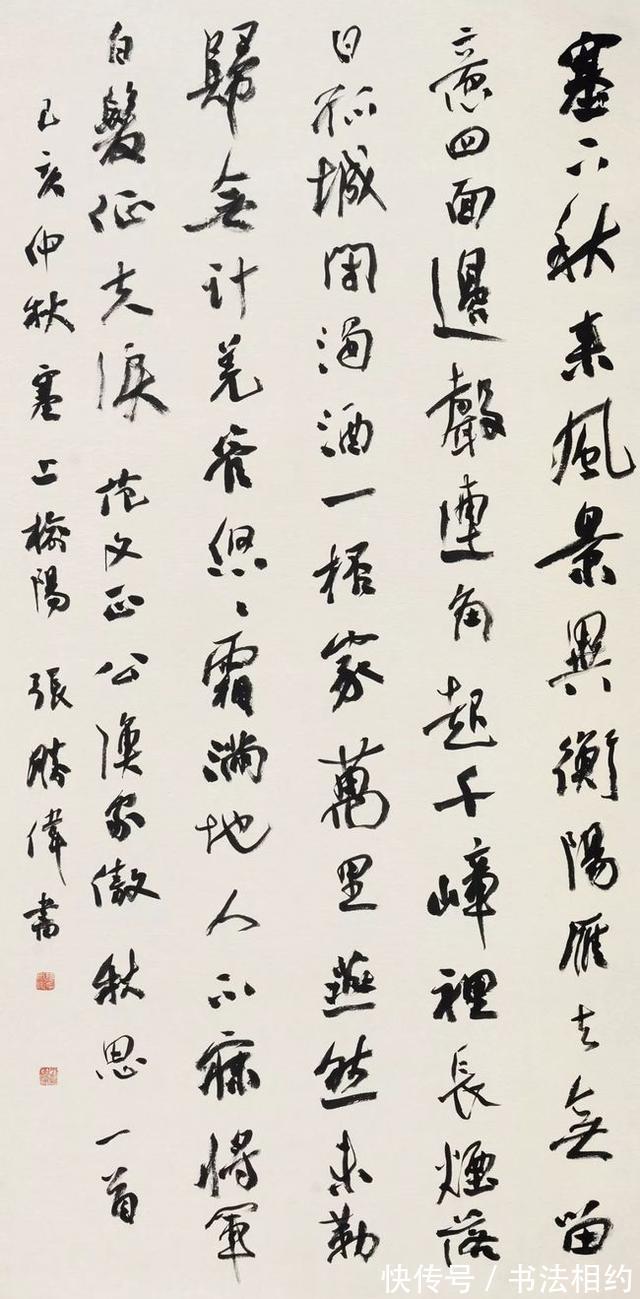 塞下秋来風景異衡陽雁去無留
意四面邊聲連角起千嶂裡長煙落
日孤城閉濁酒一杯家萬里燕然未勒
歸無計羌管悠〻霜滿地人不寐將軍
白髮征夫淚 范文正公漁家傲 秋思 一首
己亥仲秋塞上榆陽 張勝偉書
快传号/书法相约